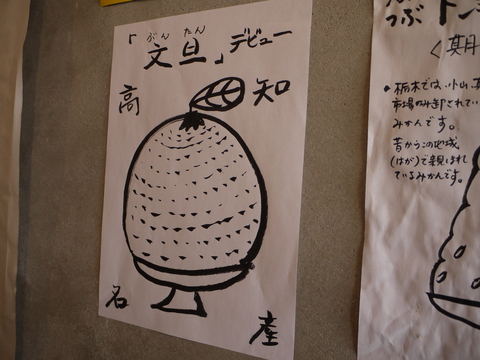 「文旦」デビュー
ぶんたん
高知
名産
つぶ
＜期
・栃木では、小山、
市場のみ卸されてい
みかんです。
昔からこの地域
(はが)で親しまれ
ているみかんです。